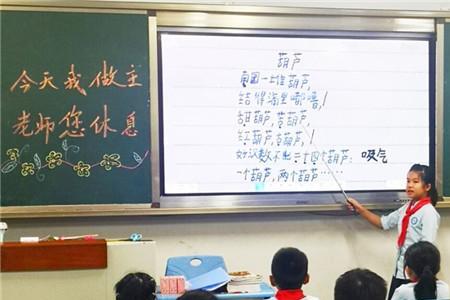 今天我做主
老师您休息
葫芦
南园一堆葫芦,
结得滴里嘟噜,
甜葫芦,苦葫芦,
红葫芦,葫芦,
好汉数不出二十四个葫芦: 吸气
一个葫芦,两个葫芦……